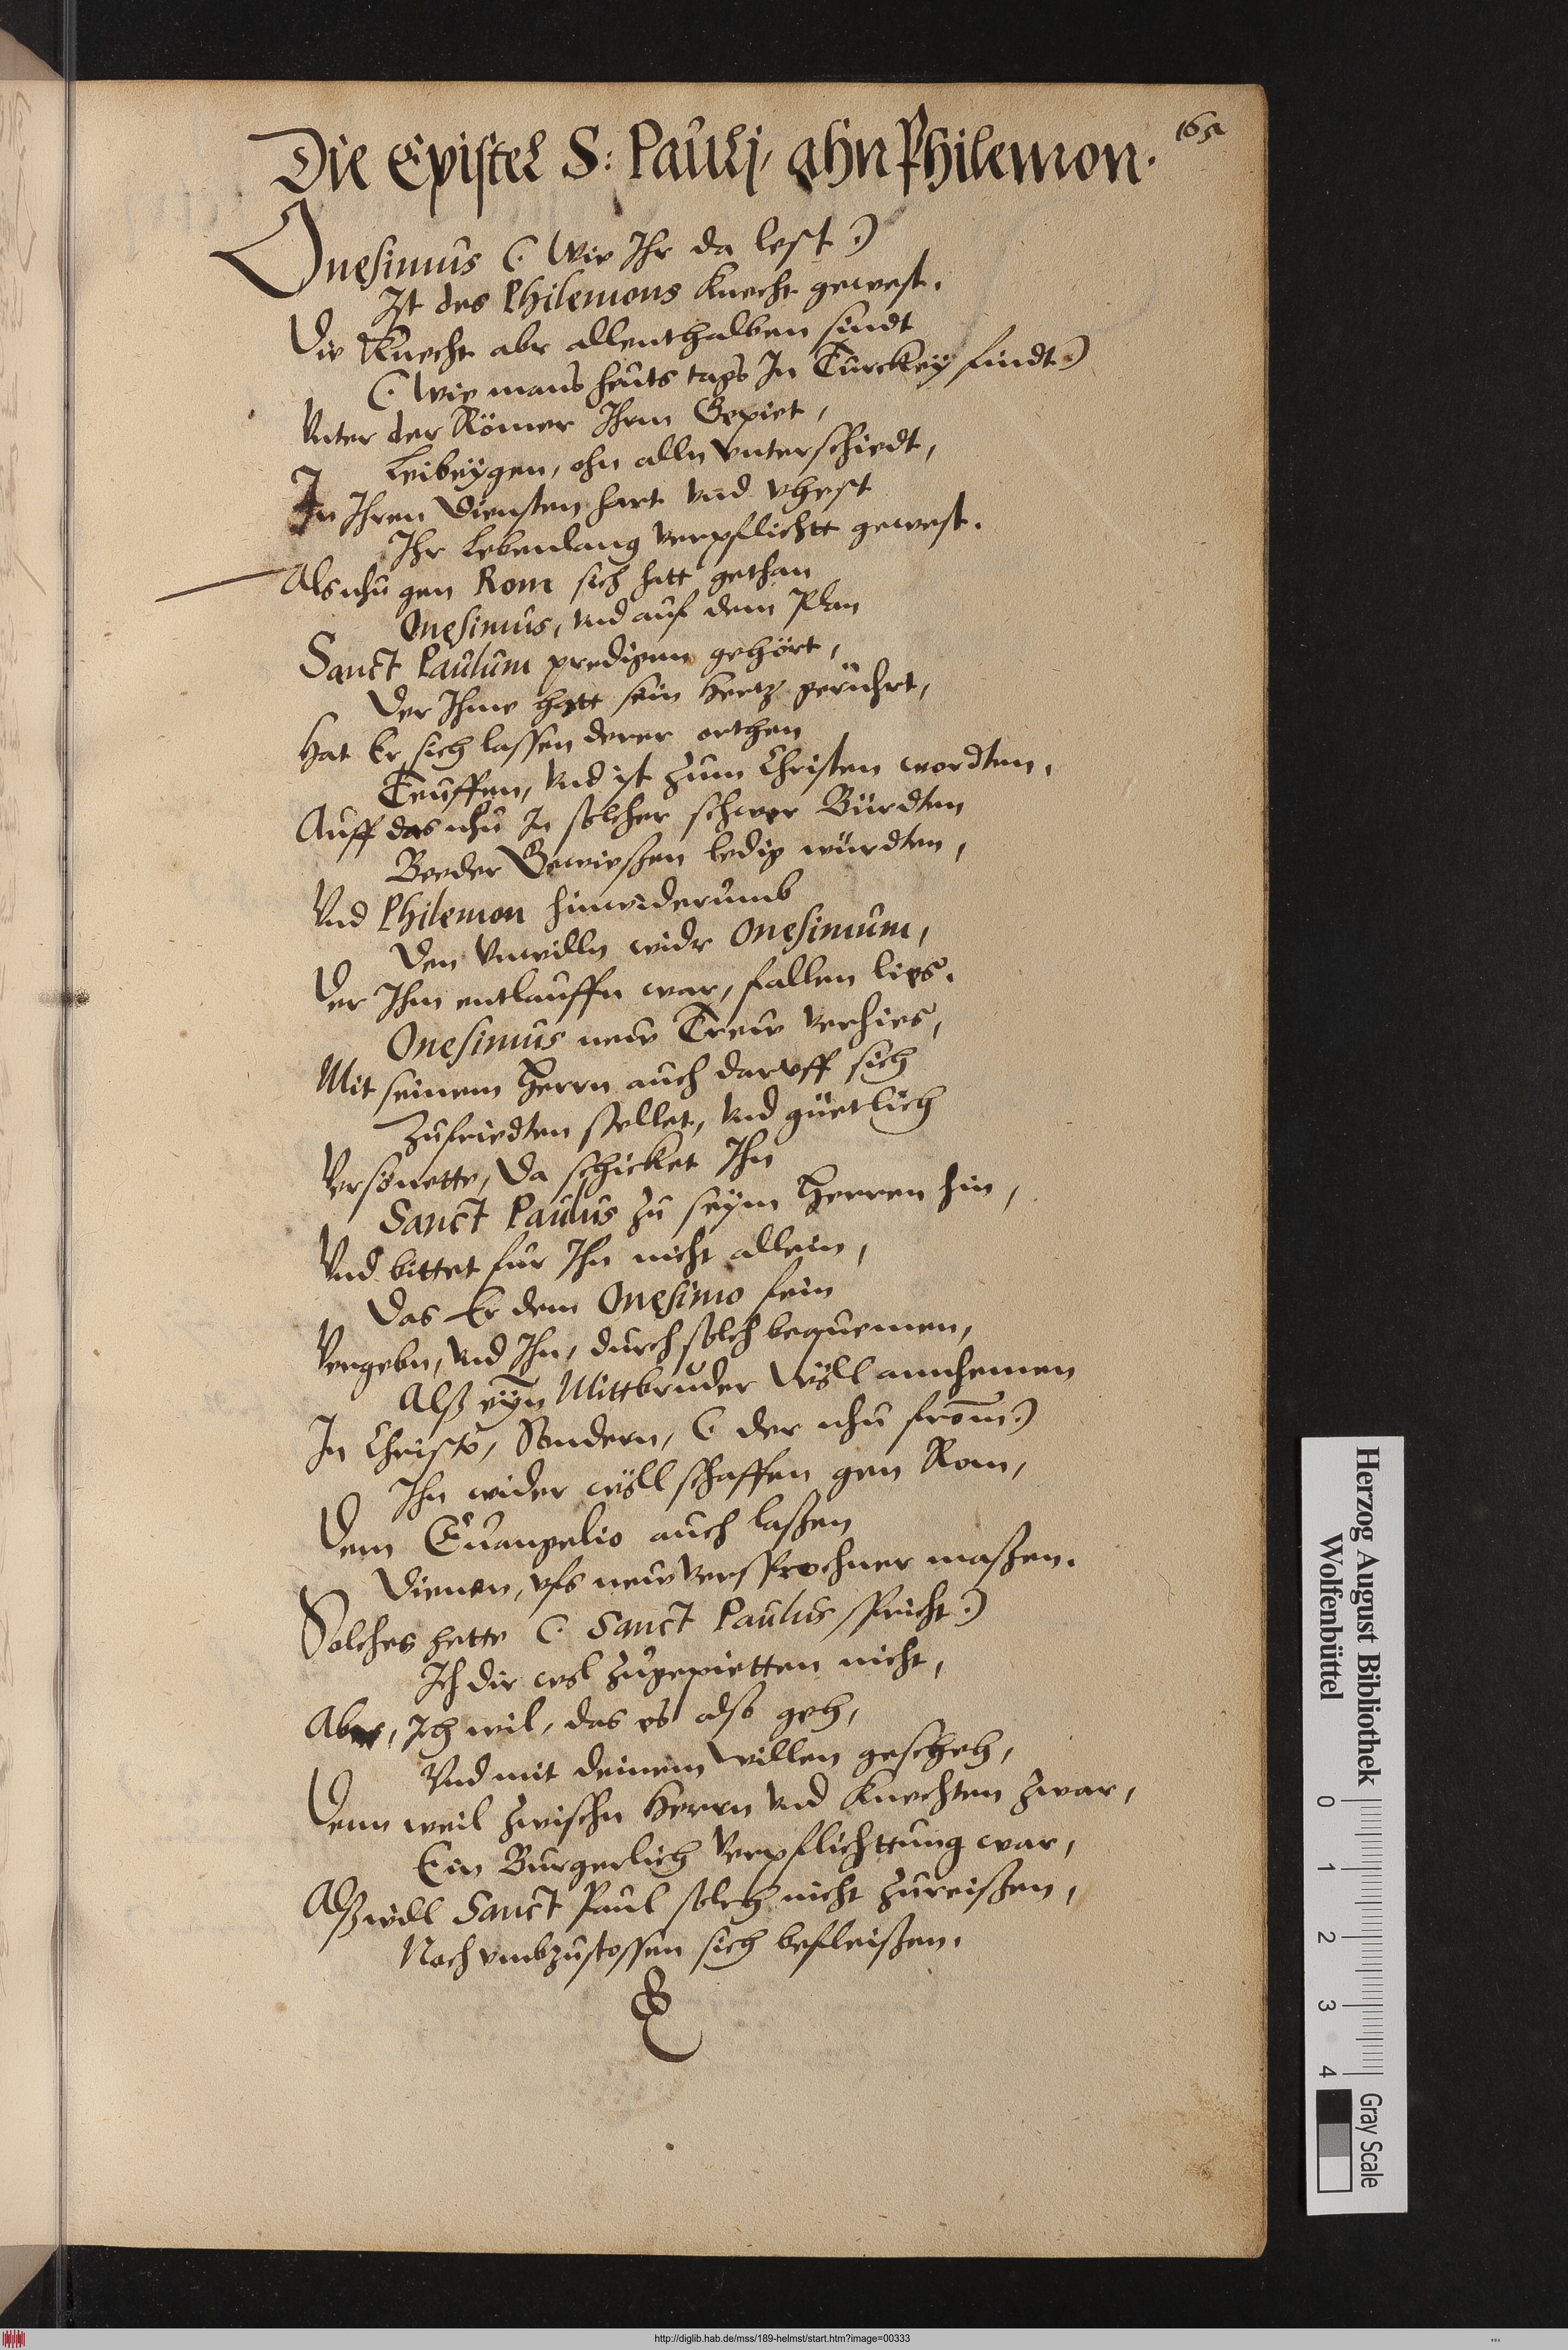 165
Die Epistel S: Paulj, ahn Philemon.
Onesimus (. Wie Ihr da lest.)
Ist des Philemons Knecht gewest.
Die Knecht abr allenthalben sindt
(. Wie mans heuts tags In Turckey findt.)
Vnter der Römer Ihrm Gepiet,
Leibeygen, ohn alln vnterschiedt,
In Ihren Diensten hart vnd vhest
Ihr Lebenlang verpflichtt gewest.
Als nhu gen Rom sich hatt gethan
Onesimus, vnd auf dem Plan
Sanct Paulum predigenn gehört,
Der Ihme hatt sein Hertz gerührt,
Hat Er sich lassen derer orthen
Teuffen, vnd ist zum Christen wordten.
Auff das nhu In solcher schwer Bürdten
Beeder Gewießen ledig würdten,
Vnd Philemon hinwiderumb
Den Vnwilln widr Onesimum,
Der Ihm entlauffn war, fallen lies.
Onesimus new Trew verhies,
Mit seinem Herrn auch daruff sich
Zufriedten stellet, vnd güetlich
Versönette, Da schicket Ihn
Sanct Paulus zu seym Herren hin,
Vnd bittet fur Ihn nicht allein,
Das Er dem Onesimo fein
Vergebn, vnd Ihn, durch solch bequemen,
Alß eyn Mittbruder wöll annhemen
In Christo, Sondern, (. der nhu from̄.)
Ihn wider wöll schaffen gen Rom,
Dem Euangelio auch laßen
Dienen, vfs new versprochner maßen.
Solches hette (. Sanct Paulus spricht.)
Ich dir wol zugepietten nicht,
Aber, Ich wil, das es also geh,
Vnd mit deinem willen gescheh,
Denn weil zwischn Herrn vnd Knechten zwar,
Ein Burgerlich verpflichttung war,
Alß will Sanct Paul solch nicht zureißen,
Noch vmbzustossen sich befleißen.
Herzog August Bibliothek
Wolfenbüttel
0 1 2 3 4
Gray Scale
http://diglib.hab.de/mss/189-helmst/start.htm?image=00333